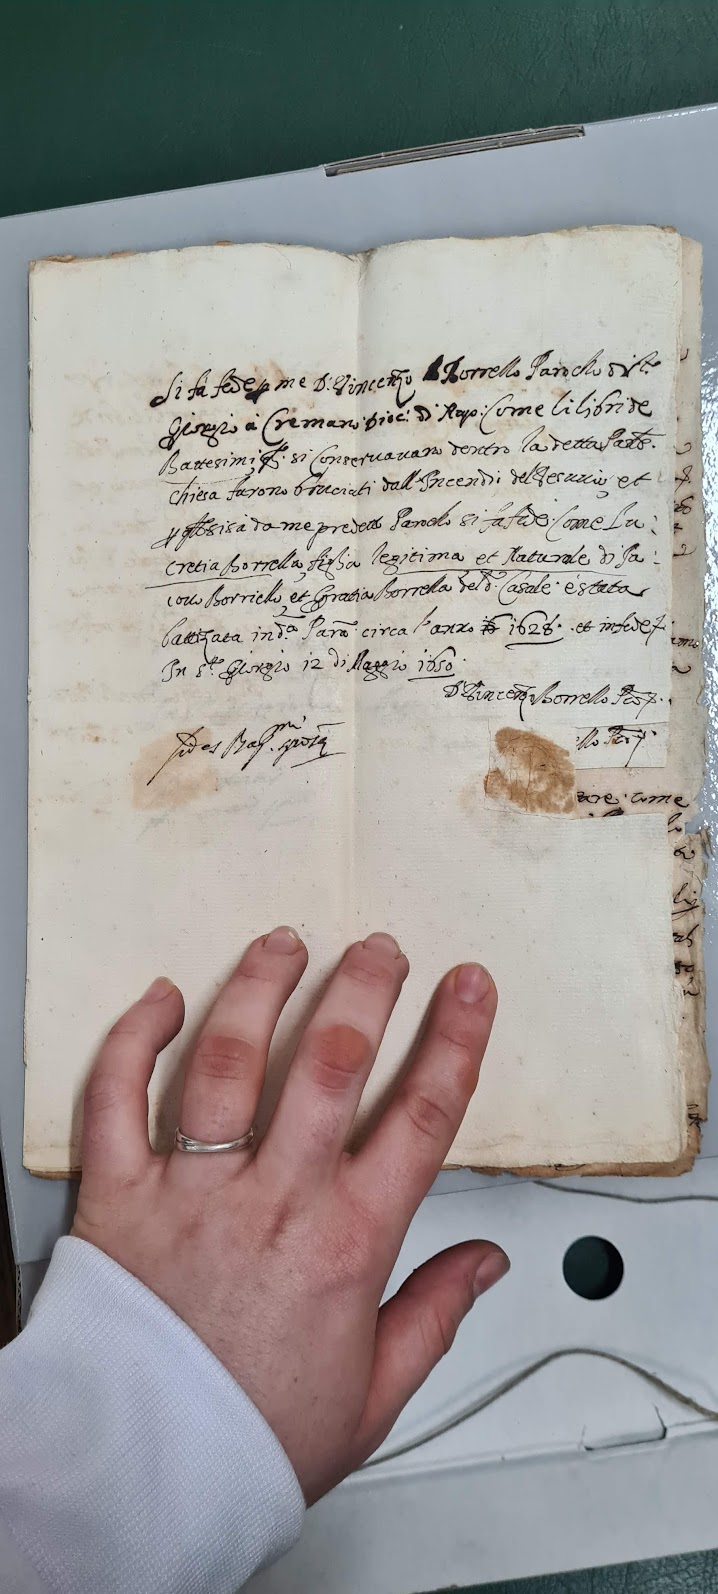 Si fà fede p me D. Vincenzo Borrello Parocho di S.to
Giorgio à Cremano Dioc: di Nap: Come li libri de
Battesimi, si Conservavano dentro la detta Paro.
Chiesa furono bruciati dall'Incendi del Vesuvio, et
si sà da me predetto Parocho si fà fede Come Lu:
cretia Borrella, figlia legitima et Naturale di Ja:
como Borriello, et Gratia Borrella del d.o Casale è stata
battizata in d.a Paro. circa l'anno 1628. et in fede
In S.to Giorgio 12 di Maggio 1650.
D. Vincenzo Borrello
Fides
llo
are come